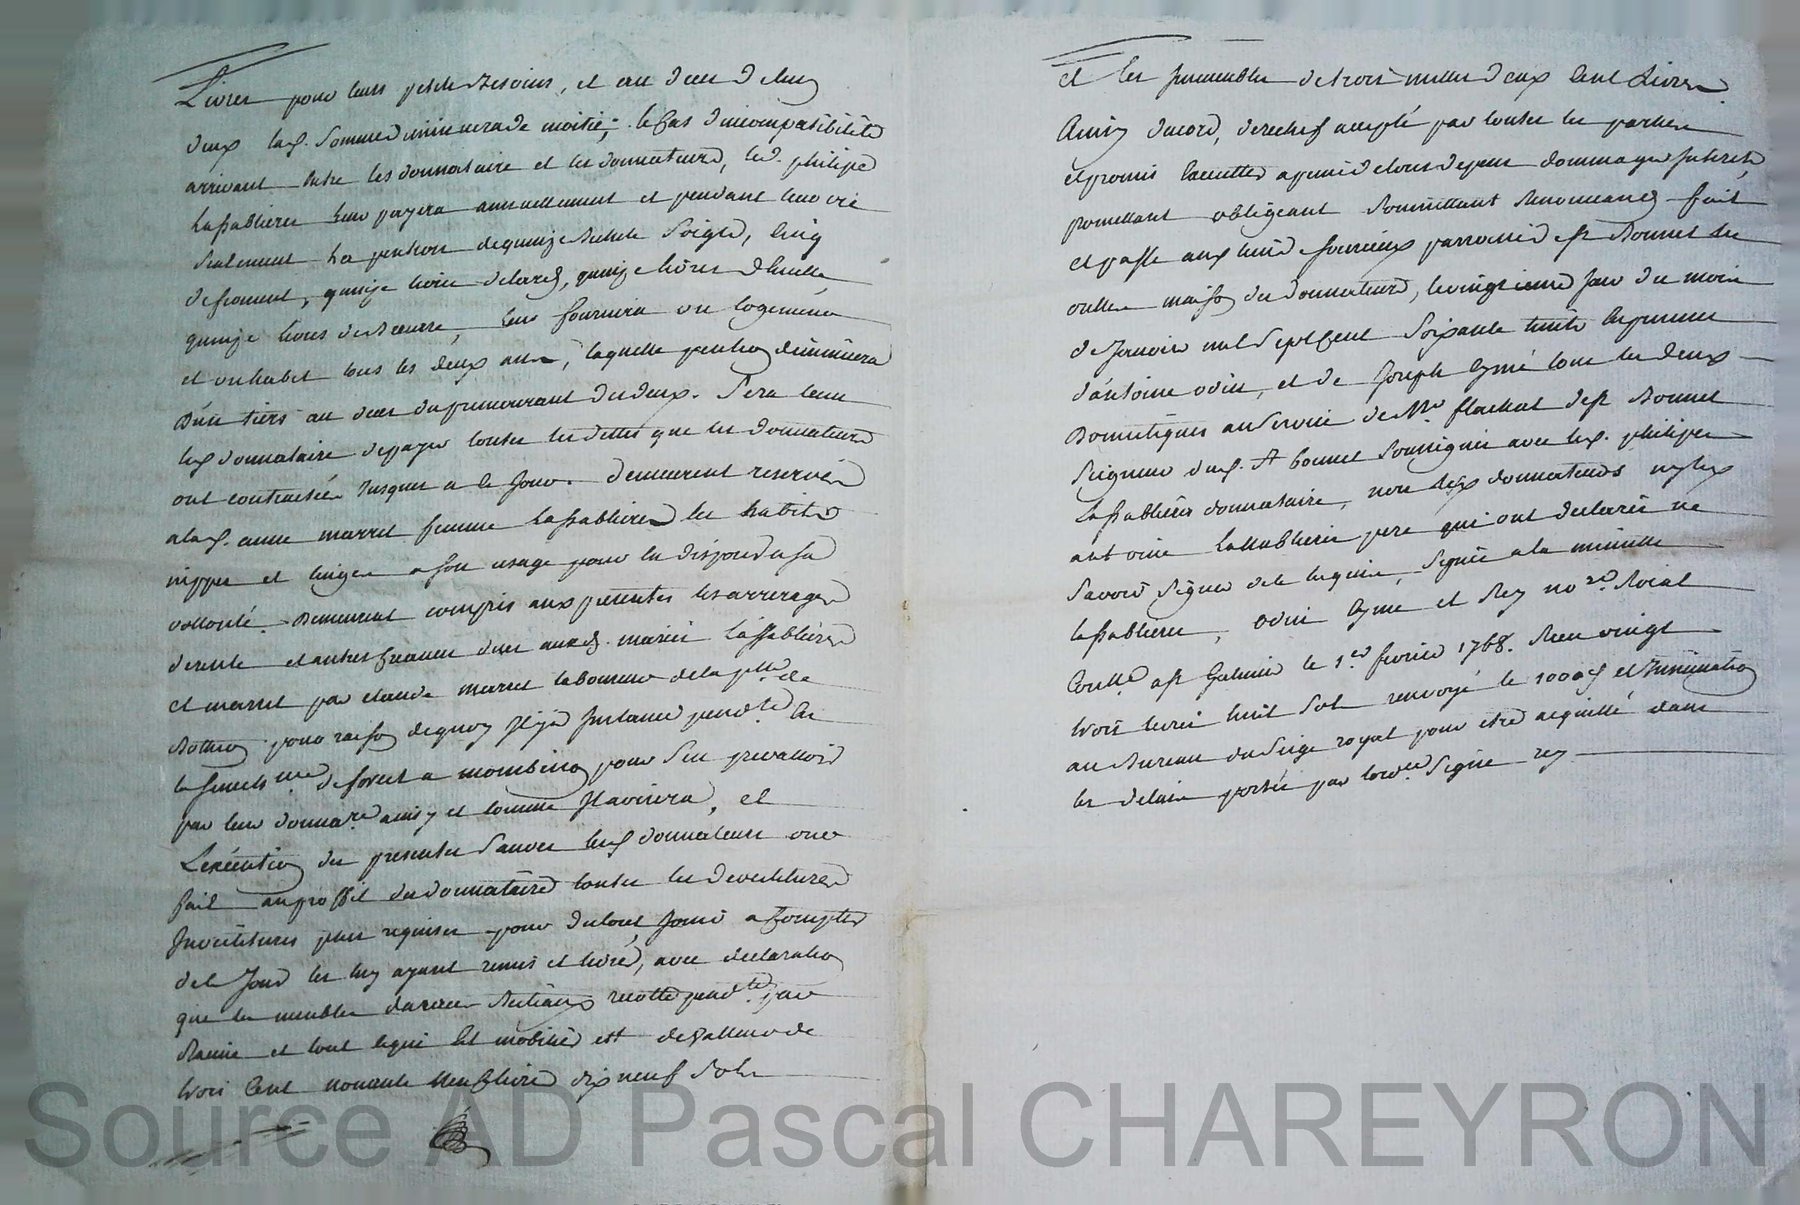 Livres pour leurs petits Besoins, et au deces de lun
deux lad. somme diminuera de moitié; le Cas d'incompatibilité
arrivant entre les donnataire et les donnateurs, led. philipe
Lassablieres leur payera annuellement et pendant leur vie
seulement La pension de quinze Bichets Seigle, Cinq
de froment, quinze livres de lard, quinze livres d'huille
quinze livres de Beurre, leur fournira un logement
et un habit tous les deux ans, laquelle pention diminuera
D'un tiers au deces du premourant des deux. Sera tenu
led. donnataire de payer toutes les dettes que les donnateurs
ont contractées Jusques a Ce Jour. demeurent reservés
a lad. anne marret femme Lassablieres les habits
nippes et linges a son usage pour en disposer a sa
vollonté. Demeurent compris aux presentes les arrerages
de rente et autres Creances dues auxd. mariés Lassablieres
et marret par claude marret laboureur de la p.sse de
pour raison de quoy Il y a Instance pend.te En
la senech.ée de forest a monbrison pour s'en prevalloir
par leur donna.re ainsy et comme Il avisera, et
L'execution des presentes Sauves lesd. donnateurs ont
fait au proffit du donnataire toutes les devestitures
Investitures plus requises pour du tout Jouir a Compter
de Ce Jour les luy ayant remis et livré, avec declaration
que les meubles danrées Bestiaux recolte pend.te par
Racine et tout ce qui Est mobilier est de Valleur de
trois Cent nonante neuf livres dix neuf sols
et les Immeubles de trois milles deux Cent Livres.
Ainsy d'acord, derechef accepté par toutes les parties
et promis a peine de tous depens dommages Interets
promettant obligeant Soumettant Renonceant fait
et passé aux lieu de parroisse de St Bonnet les
oulles maison des donnateurs, le vingtieme jour du mois
de Janvier mil sept Cent soixante huit En presence
d'antoine odin, et de Joseph Eymé tous les deux
Domestiques au service de Mr. flachat de St Bonnet
Seigneur dud. St bonnet soussignés avec led. philipe
Lassablieres donnataire, non lesd. donnateurs ny led.
antoine Lassablieres pere qui ont declarés ne
savoir signer de ce Enquis, signé a la minutte
Lassablieres, odin Eyme et Rey no.re Roial
Conll.é a St Galmier le 1.er fevrier 1768. Receu vingt
trois livres huit sols renvoyé le 100.e d. et Insinuation
au Bureau du siege royal pour etre acquitté dans
les delais portés par l'ord.ce Signé rey
Source AD Pascal CHAREYRON